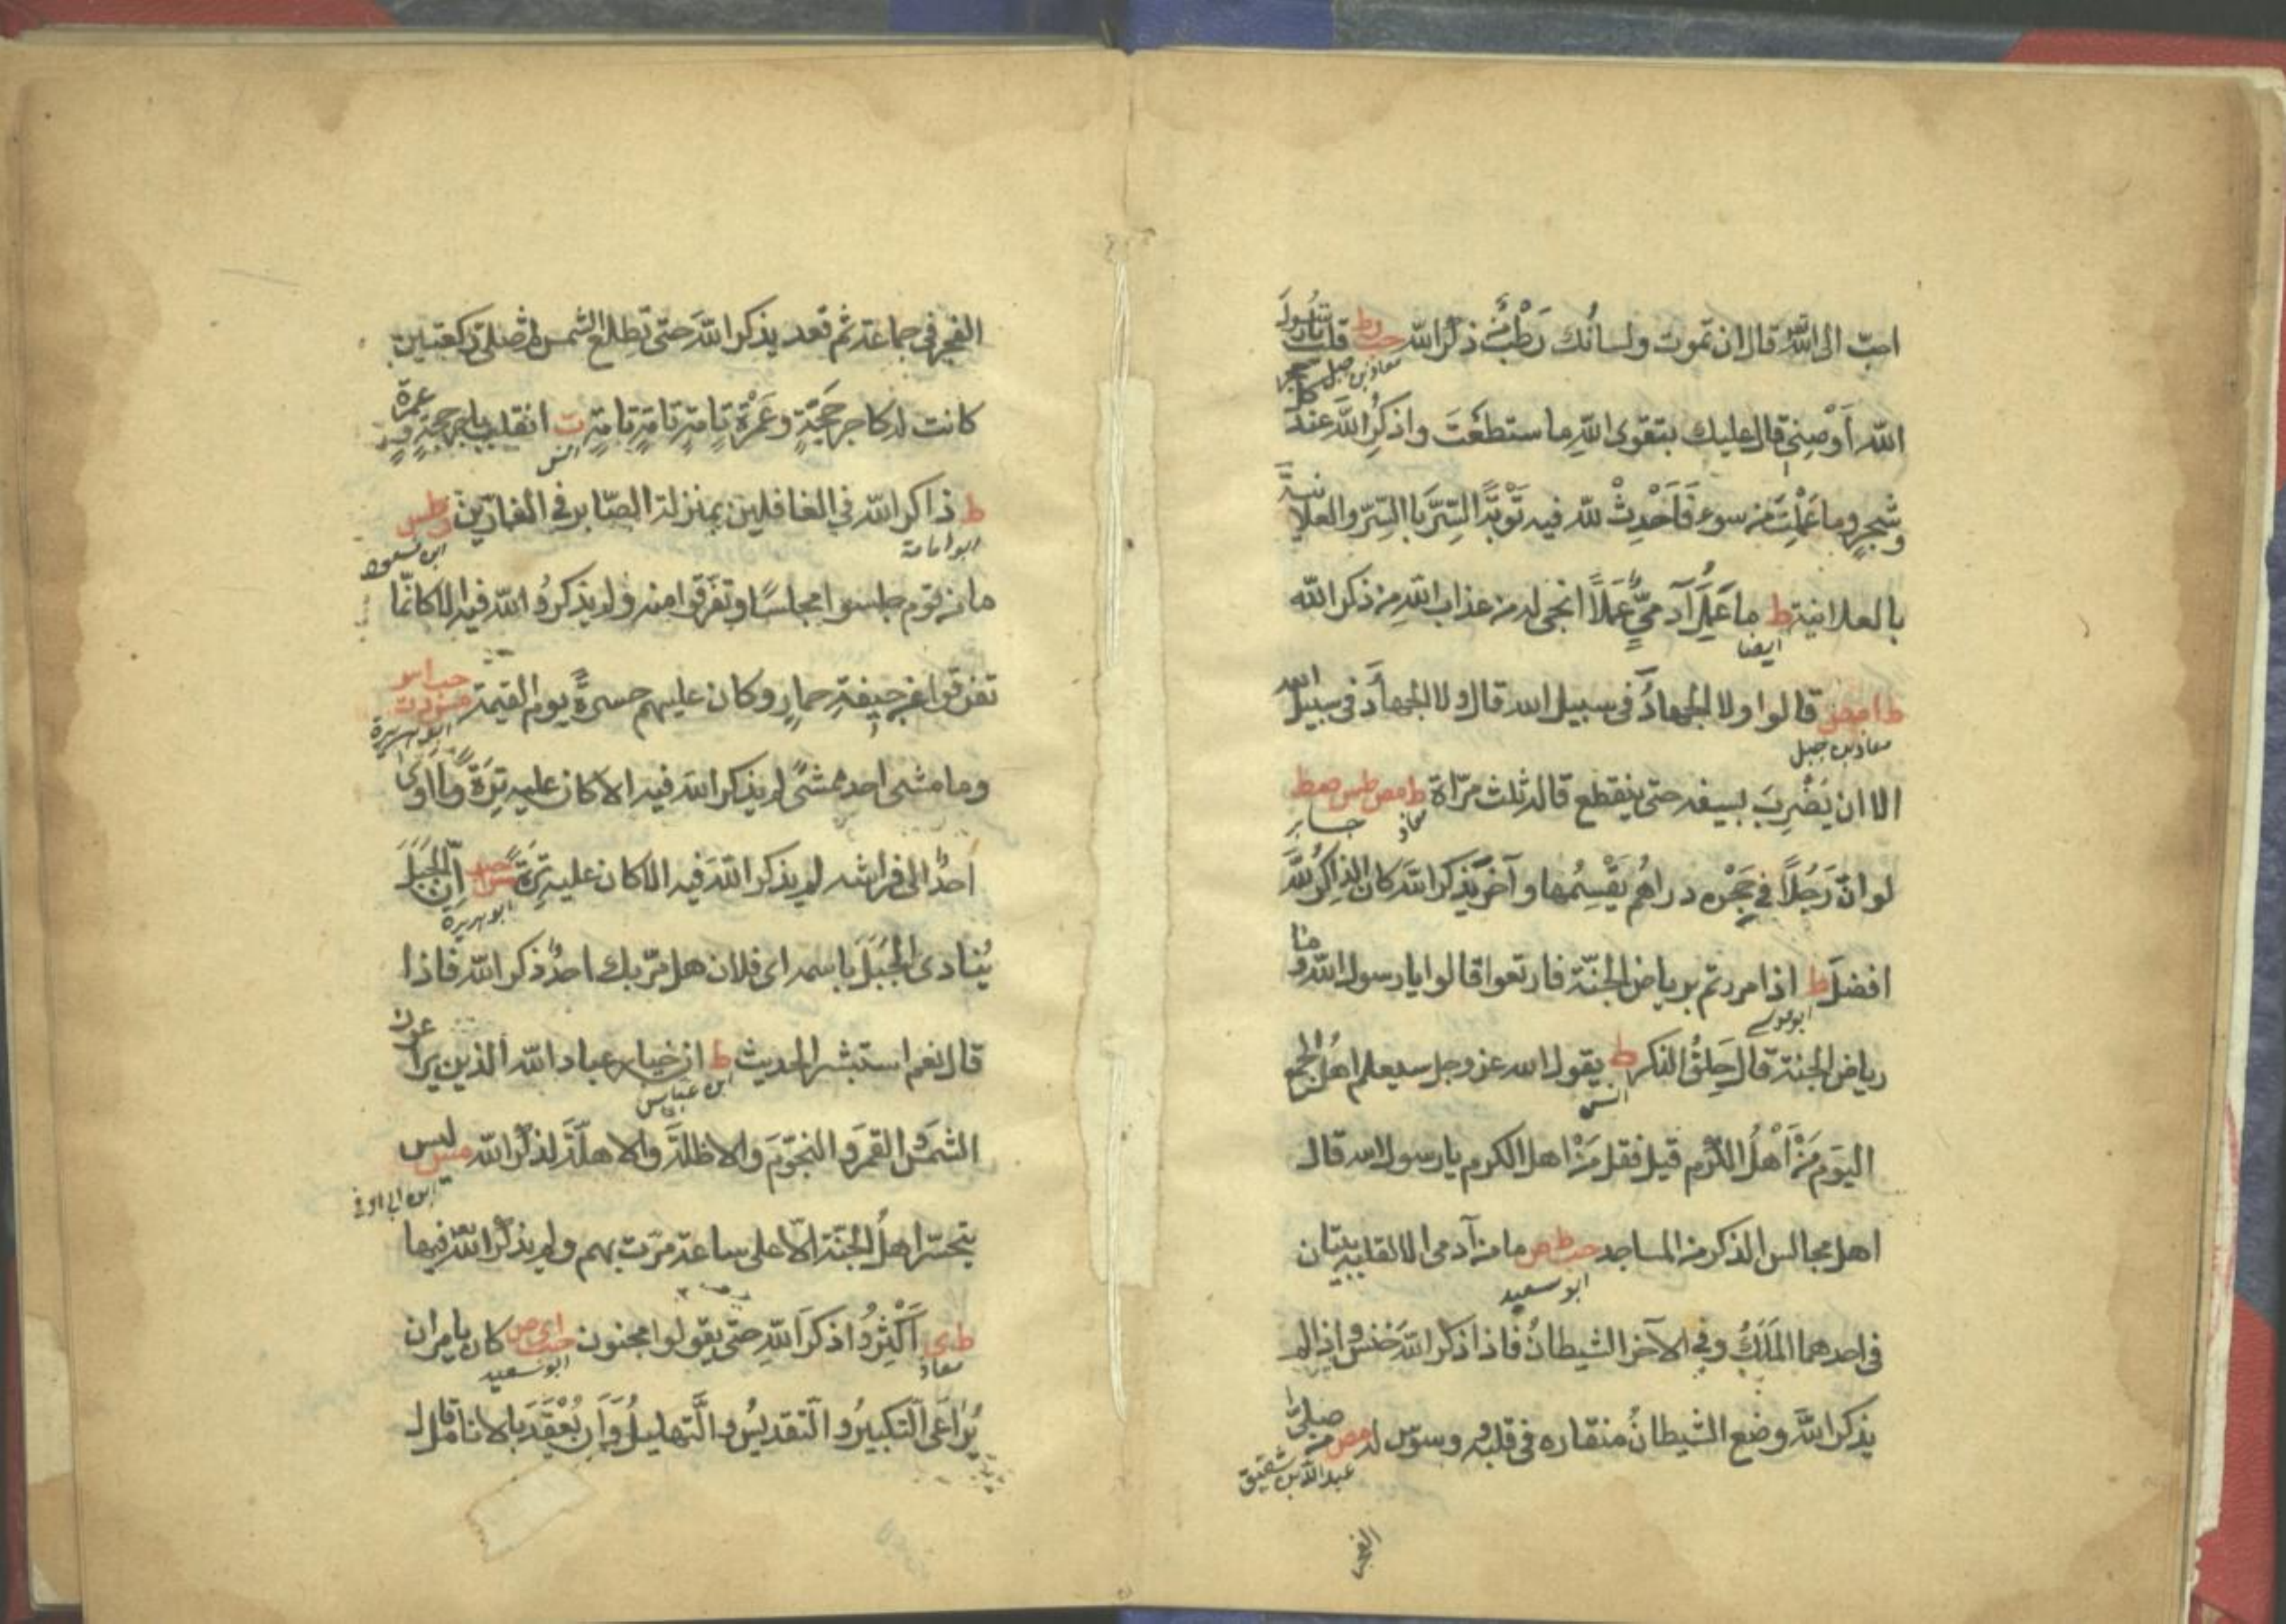 احبّ الى الله قال ان تموت ولسانُك رَطْبٌ من ذكر الله حب ر ط قلت يا رسول
معاذ بن جبل
الله أَوْصِنِي قال عليك بتقوى اللهِ ما ستطعْتَ واذكرِ اللهَ عند كل حجر
وشجرٍ وما عَمِلْتَ من سوء فَاَحْدِثْ لله فيه تَوْبَةً السِّرَّ باالسِّرّ والعلانية
بالعلانية ط ما عَمِلَ آدمىٌّ عملاً انجى له من عذاب اللهِ من ذكر الله
ايضا
ط ا مص قالوا ولا الجهادُ فى سبيل الله قال ولا الجهادُ فى سبيل الله
معاذ بن جبل
الا ان يَضْرِبَ بسيفه حتى ينقطع قاله ثلث مرّاة ط مص طس صط
معاذ جابر
لو انّ رَجُلاً فى حِجْرِه دراهمُ يَقْسِمُها وآخر يذكر الله كان الذاكرُ للهِ
افضلَ ط اذا مررتم برياض الجنّة فارتعوا قالوا يا رسول الله وما
ابوموسى
رياض الجنة قال حِلَقُ الذكر ط يقول الله عز وجل سيعلم اهلُ الجمع
انس
اليوم مَنْ اَهْلُ الكَرَم قيل فقل مَنْ اهل الكرم يا رسول الله قال
اهل مجالس الذكر من المساجد حب ط ص ما من آدمى الا لقلبه بيتان
ابو سعيد
فى احدهما المَلَكُ وفى الآخر الشيطانُ فاذا ذكر اللهَ خنس واذا لم
يذكر اللهَ وضع الشيطانُ منقاره فى قلبه ووسوس له مص من صلىّ
عبد الله بن شقيق
الفجر
الفجر فى جماعة ثم قعد يذكر اللهَ حتى تطلع الشمس ثم صلىّ ركعتين
كانت له كاجر حَجَّةٍ وعُمْرَةٍ تامّةٍ تامّةٍ تامّةٍ ت انقلب باجر حجةٍ وعمرة
انس
ط ذاكر الله فى الغافلين بمنزلة الصّابر فى الفارّين ر طس
ابوامامة ابن مسعود
ما من قوم جلسوا مجلسًا وتفرّقوا منه ولم يذكروا الله فيه الا كانّما
تفرقوا عن جيفةِ حمارٍ وكان عليهم حسرةً يوم القيمة
ابو هريرة
وما مشى احد ممشًى لم يذكر الله فيه الا كان عليه تِرَةً وما اوى
احدٌ الى فراشه لم يذكر اللهَ فيه الا كان عليه تِرَةً اِنّ الجَبَلَ
ابو هريرة
يُنادى الجَبَلَ باسمه اى فلان هل مرّ بك احدٌ ذكر الله فاذا
قال نعم استبشر الحديث ط ان خيار عباد الله الذين يراعون
ابن عباس
الشمسَ والقمرَ والنجومَ والاظلّةَ والاهلّةَ لذكر الله مس ليس
ابن ابى اوفى
يتحسّر اهلُ الجنّة الاّ على ساعة مرّت بهم ولم يذكروا الله فيها
ط ى اَكْثِرُوا ذكرَ اللهِ حتى يقولوا مجنون حب ا ى ص كان يامر ان
معاذ ابو سعيد
يُرَاعَى التكبيرُ والتقديسُ والتهليلُ وَاَن يُعْقَدَ بالانامل قال